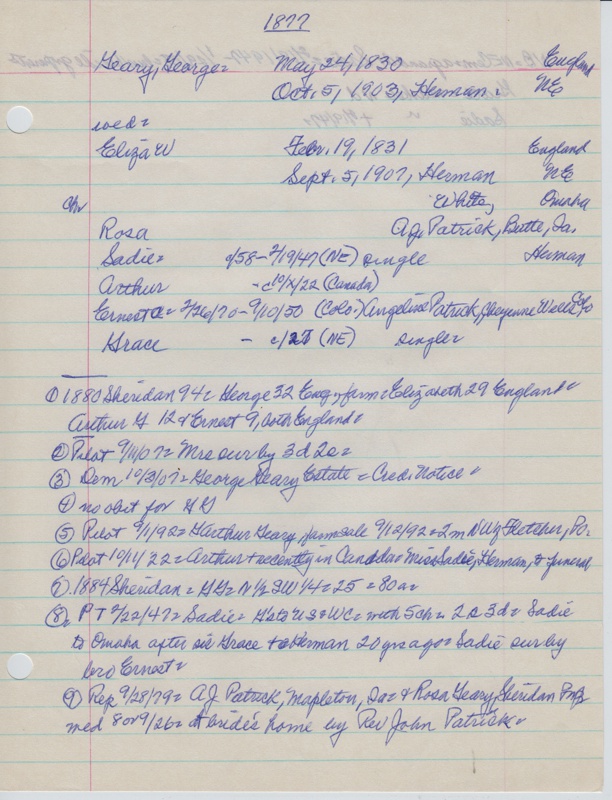 1877
Geary, George= May 24, 1830 England
Oct. 5, 1903, Herman= NE
wed=
Eliza W Febr. 19, 1831 England
Sept. 5, 1907, Herman NE
Chr White, Omaha
Rosa A.J. Patrick, Butte, Ia.
Sadie= c/58- 2/19/47 (NE) single Herman
Arthur -c10/x/22 (Canada)
Ernest 2/26/70- 9/10/50 (Colo.) Angeline Patrick, Cheyenne Wells Colo
Grace - c/27 (NE) single=
① 1880 Sheridan 94= George 32 Eng., farm= Elizabeth 29 England=
Arthur G 12 & Ernest 9, both England=
② Pilot 9/11/07= Mrs sur by 3d 2s=
③ Dem 10/3/07= George Geary Estate= Credi Notice=
④ no obit for GG
⑤ Pilot 9/1/92= G Arthur Geary, farm sale 9/12/92= 2m NW Fletcher, Po.
⑥ Pilot 10/11/22= Arthur + recently in Canada= Miss Sadie, Herman, to funeral
7. 1884 Sheridan= GG= N½ SW¼= 25= 80a=
⑧ PT 2/22/47= Sadie= G's to US= WC= with 5ch= 2s 3d= Sadie
to Omaha after sis Grace + Herman 20 yrs ago= Sadie sur by
bro Ernest=
⑨ Rep 9/28/79= A J Patrick, Mapleton, Ia= & Rosa Geary, Sheridan
wed 8 or 9/26= At bride's home by Rev John Patrick=